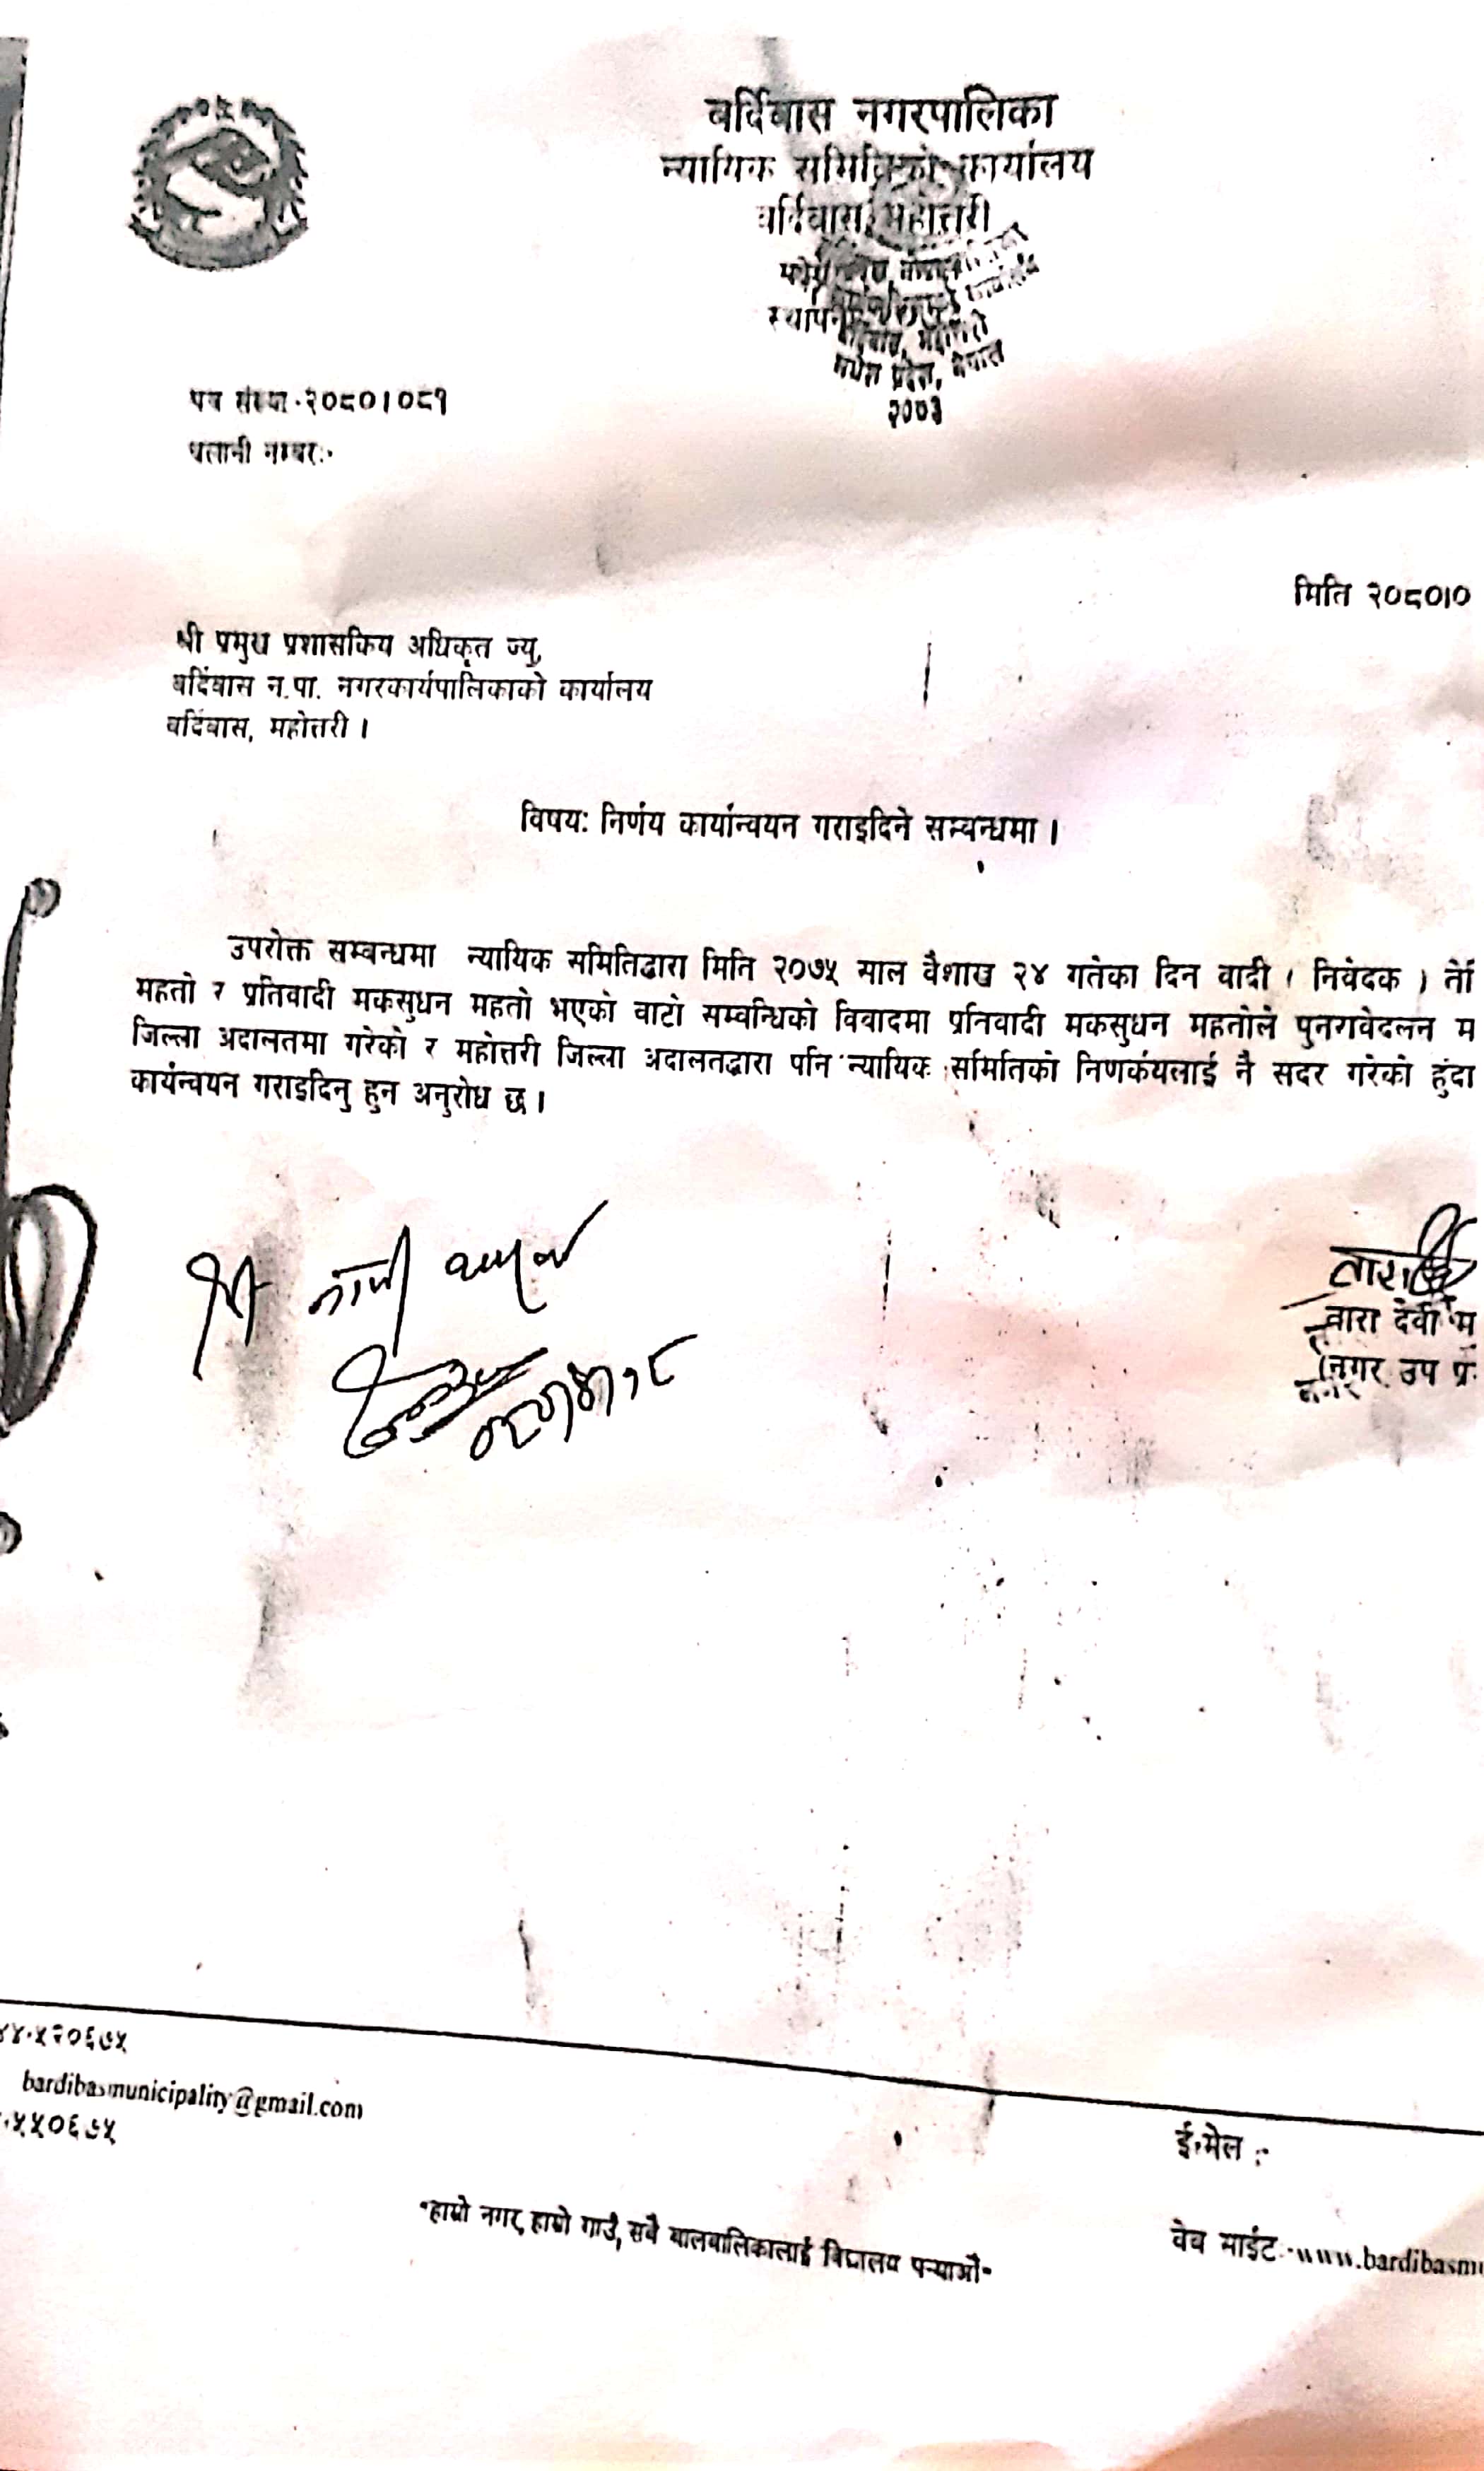 बर्दिबास नगरपालिका
न्यायिक समितिको कार्यालय
बर्दिबास, महोत्तरी
मधेश प्रदेश, नेपाल
२००३
पत्र संख्या-२०८०।०८१
चलानी नम्बर:-
मिति २०८०।०
श्री प्रमुख प्रशासकिय अधिकृत ज्यु,
बर्दिबास न.पा. नगरकार्यपालिकाको कार्यालय
बर्दिबास, महोत्तरी ।
विषय: निर्णय कार्यान्वयन गराइदिने सम्बन्धमा ।
उपरोक्त सम्बन्धमा न्यायिक समितिद्वारा मिति २०७५ साल वैशाख २४ गतेका दिन वादी ( निवेदक )
महतो र प्रतिवादी मकसुधन महतो भएको वाटो सम्वन्धिको विवादमा प्रतिवादी मकसुधन महतोले पुनरावेदलन म
जिल्ला अदालतमा गरेको र महोत्तरी जिल्ला अदालतद्वारा पनि न्यायिक समितिको निणर्कयलाई नै सदर गरेको हुंदा
कार्यन्वयन गराइदिनु हुन अनुरोध छ ।
तारा देवी म
नगर उप प्र
४४-५२०६७५
bardibasmunicipality@gmail.com
५५०६७५
ई-मेल :-
वेव साईट:-www.bardibasmu
"हाम्रो नगर, हाम्रो गाउँ, सबै बालबालिकालाई विद्यालय पर्‍याऔं"